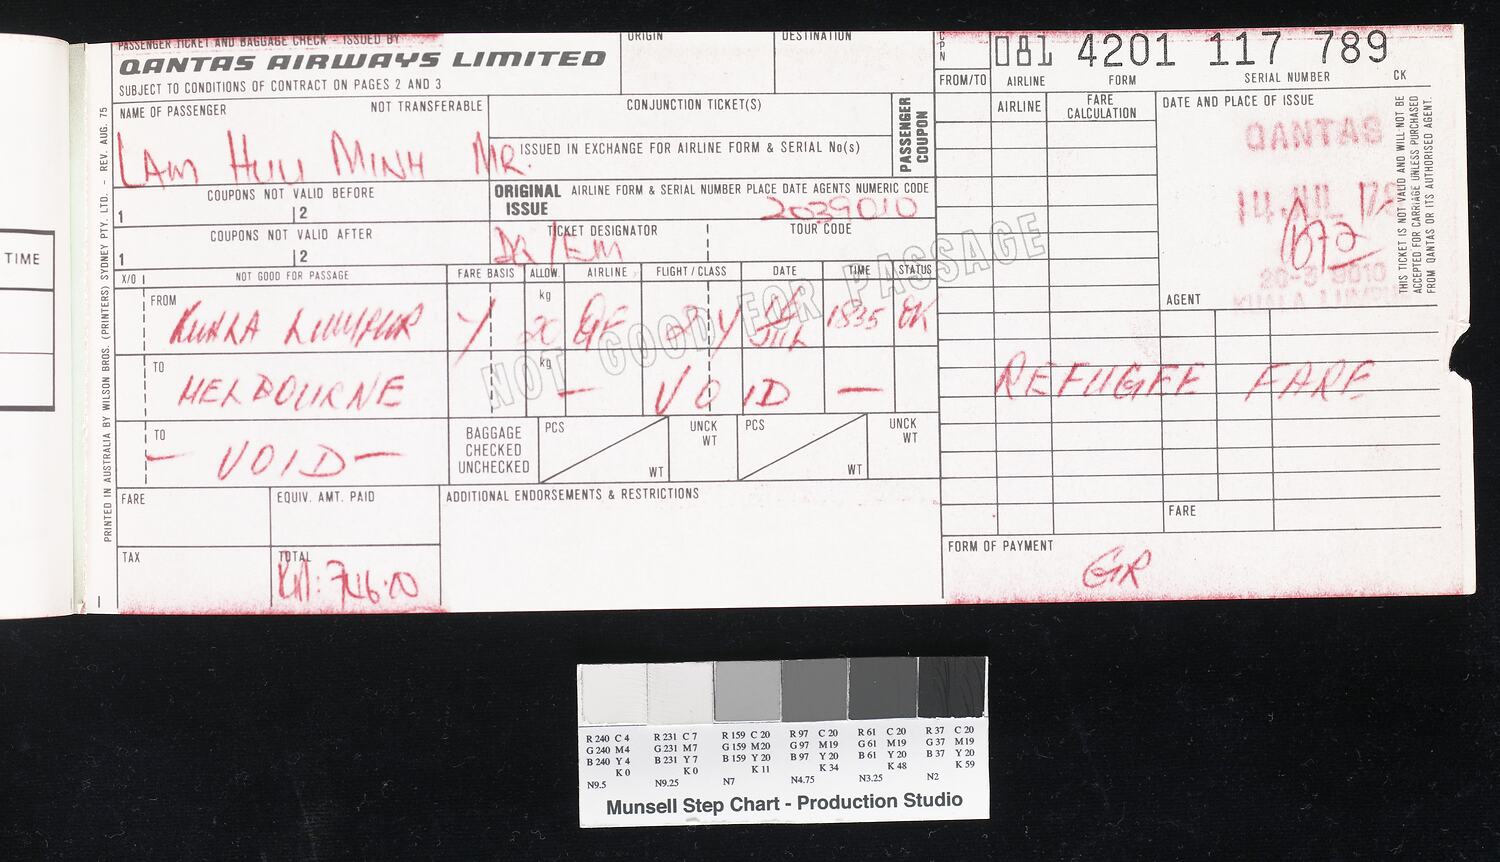 PASSENGER TICKET AND BAGGAGE CHECK - ISSUED BY
QANTAS AIRWAYS LIMITED
SUBJECT TO CONDITIONS OF CONTRACT ON PAGES 2 AND 3
ORIGIN
DESTINATION
CPN
081 4201 117 789
FROM/TO
AIRLINE
FORM
SERIAL NUMBER
CK
NAME OF PASSENGER
NOT TRANSFERABLE
LAM HUU MINH MR.
CONJUNCTION TICKET(S)
PASSENGER COUPON
ISSUED IN EXCHANGE FOR AIRLINE FORM & SERIAL No(s)
AIRLINE
FARE CALCULATION
DATE AND PLACE OF ISSUE
QANTAS
14 JUL
KUALA LUMPUR
AGENT
THIS TICKET IS NOT VALID AND WILL NOT BE
ACCEPTED FOR CARRIAGE UNLESS PURCHASED
FROM QANTAS OR ITS AUTHORISED AGENT.
COUPONS NOT VALID BEFORE
1
2
ORIGINAL ISSUE
AIRLINE FORM & SERIAL NUMBER PLACE DATE AGENTS NUMERIC CODE
2039010
COUPONS NOT VALID AFTER
1
2
TICKET DESIGNATOR
TOUR CODE
X/O
NOT GOOD FOR PASSAGE
FARE BASIS
ALLOW.
AIRLINE
FLIGHT/CLASS
DATE
TIME
STATUS
NOT GOOD FOR PASSAGE
FROM
KUALA LUMPUR
Y
kg
20
QF
Y
JUL
1835
OK
TO
MELBOURNE
kg
- VOID -
TO
- VOID -
BAGGAGE CHECKED UNCHECKED
PCS
WT
UNCK WT
PCS
WT
UNCK WT
REFUGEE FARE
FARE
EQUIV. AMT. PAID
ADDITIONAL ENDORSEMENTS & RESTRICTIONS
FARE
TAX
TOTAL
746.00
FORM OF PAYMENT
GR
PRINTED IN AUSTRALIA BY WILSON BROS. (PRINTERS) SYDNEY PTY. LTD. - REV. AUG. 75
TIME
R 240 C 4
G 240 M 4
B 240 Y 4
K 0
N9.5
R 231 C 7
G 231 M 7
B 231 Y 7
K 0
N9.25
R 159 C 20
G 159 M 20
B 159 Y 20
K 11
N7
R 97 C 20
G 97 M 19
B 97 Y 20
K 34
N4.75
R 61 C 20
G 61 M 19
B 61 Y 20
K 48
N3.25
R 37 C 20
G 37 M 19
B 37 Y 20
K 59
N2
Munsell Step Chart - Production Studio